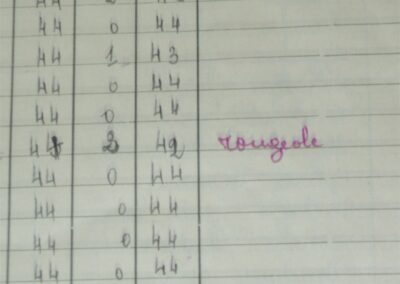 44 0 44
44 1 43
44 0 44
44 0 44
44 2 42 rougeole
44 0 44
44 0 44
44 0 44
44 0 44